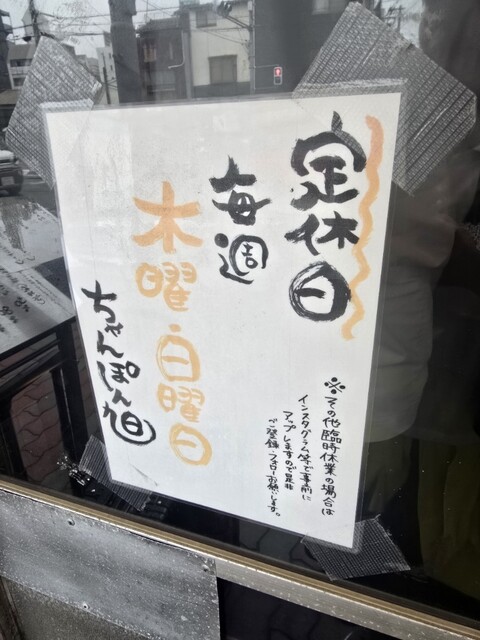 定休日
毎週
木曜・日曜日
ちゃんぽん旭
※その他臨時休業の場合は
インスタグラム等で事前に
アップしますので是非
ご登録・フォローお願いします。